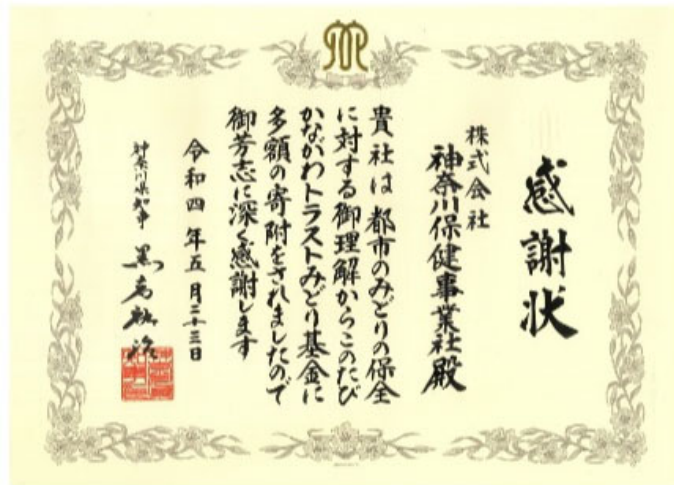 感謝状
株式会社
神奈川保健事業社殿
貴社は都市のみどりの保全
に対する御理解からこのたび
かながわトラストみどり基金に
多額の寄附をされましたので
御芳志に深く感謝します
令和四年五月二十三日
神奈川県知事 黒岩祐治